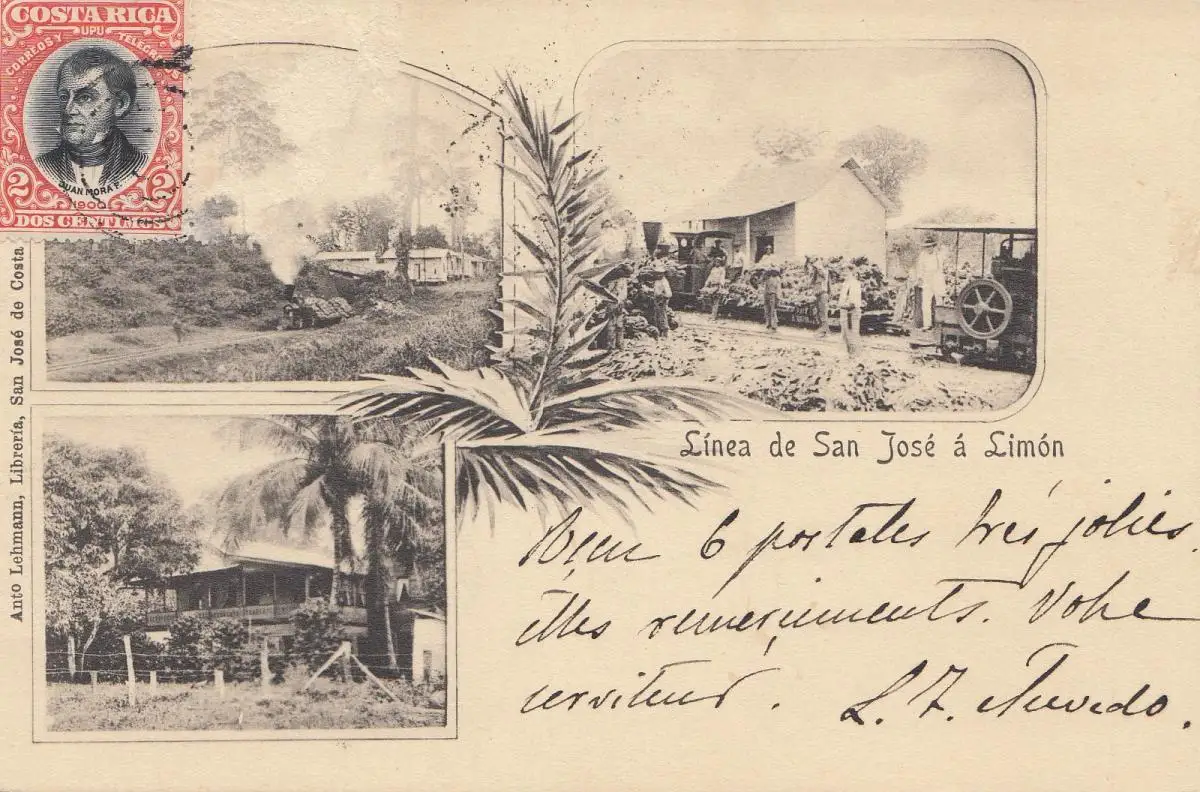 COSTA RICA
UPU
CORREOS Y TELEGRAFOS
JUAN MORA F.
1900
2 2
DOS CENTIMOS
Anto Lehmann, Librería, San José de Costa
Línea de San José á Limón
Reçu 6 postales très jolies.
Mes remerciments. Votre
serviteur.
L. F.